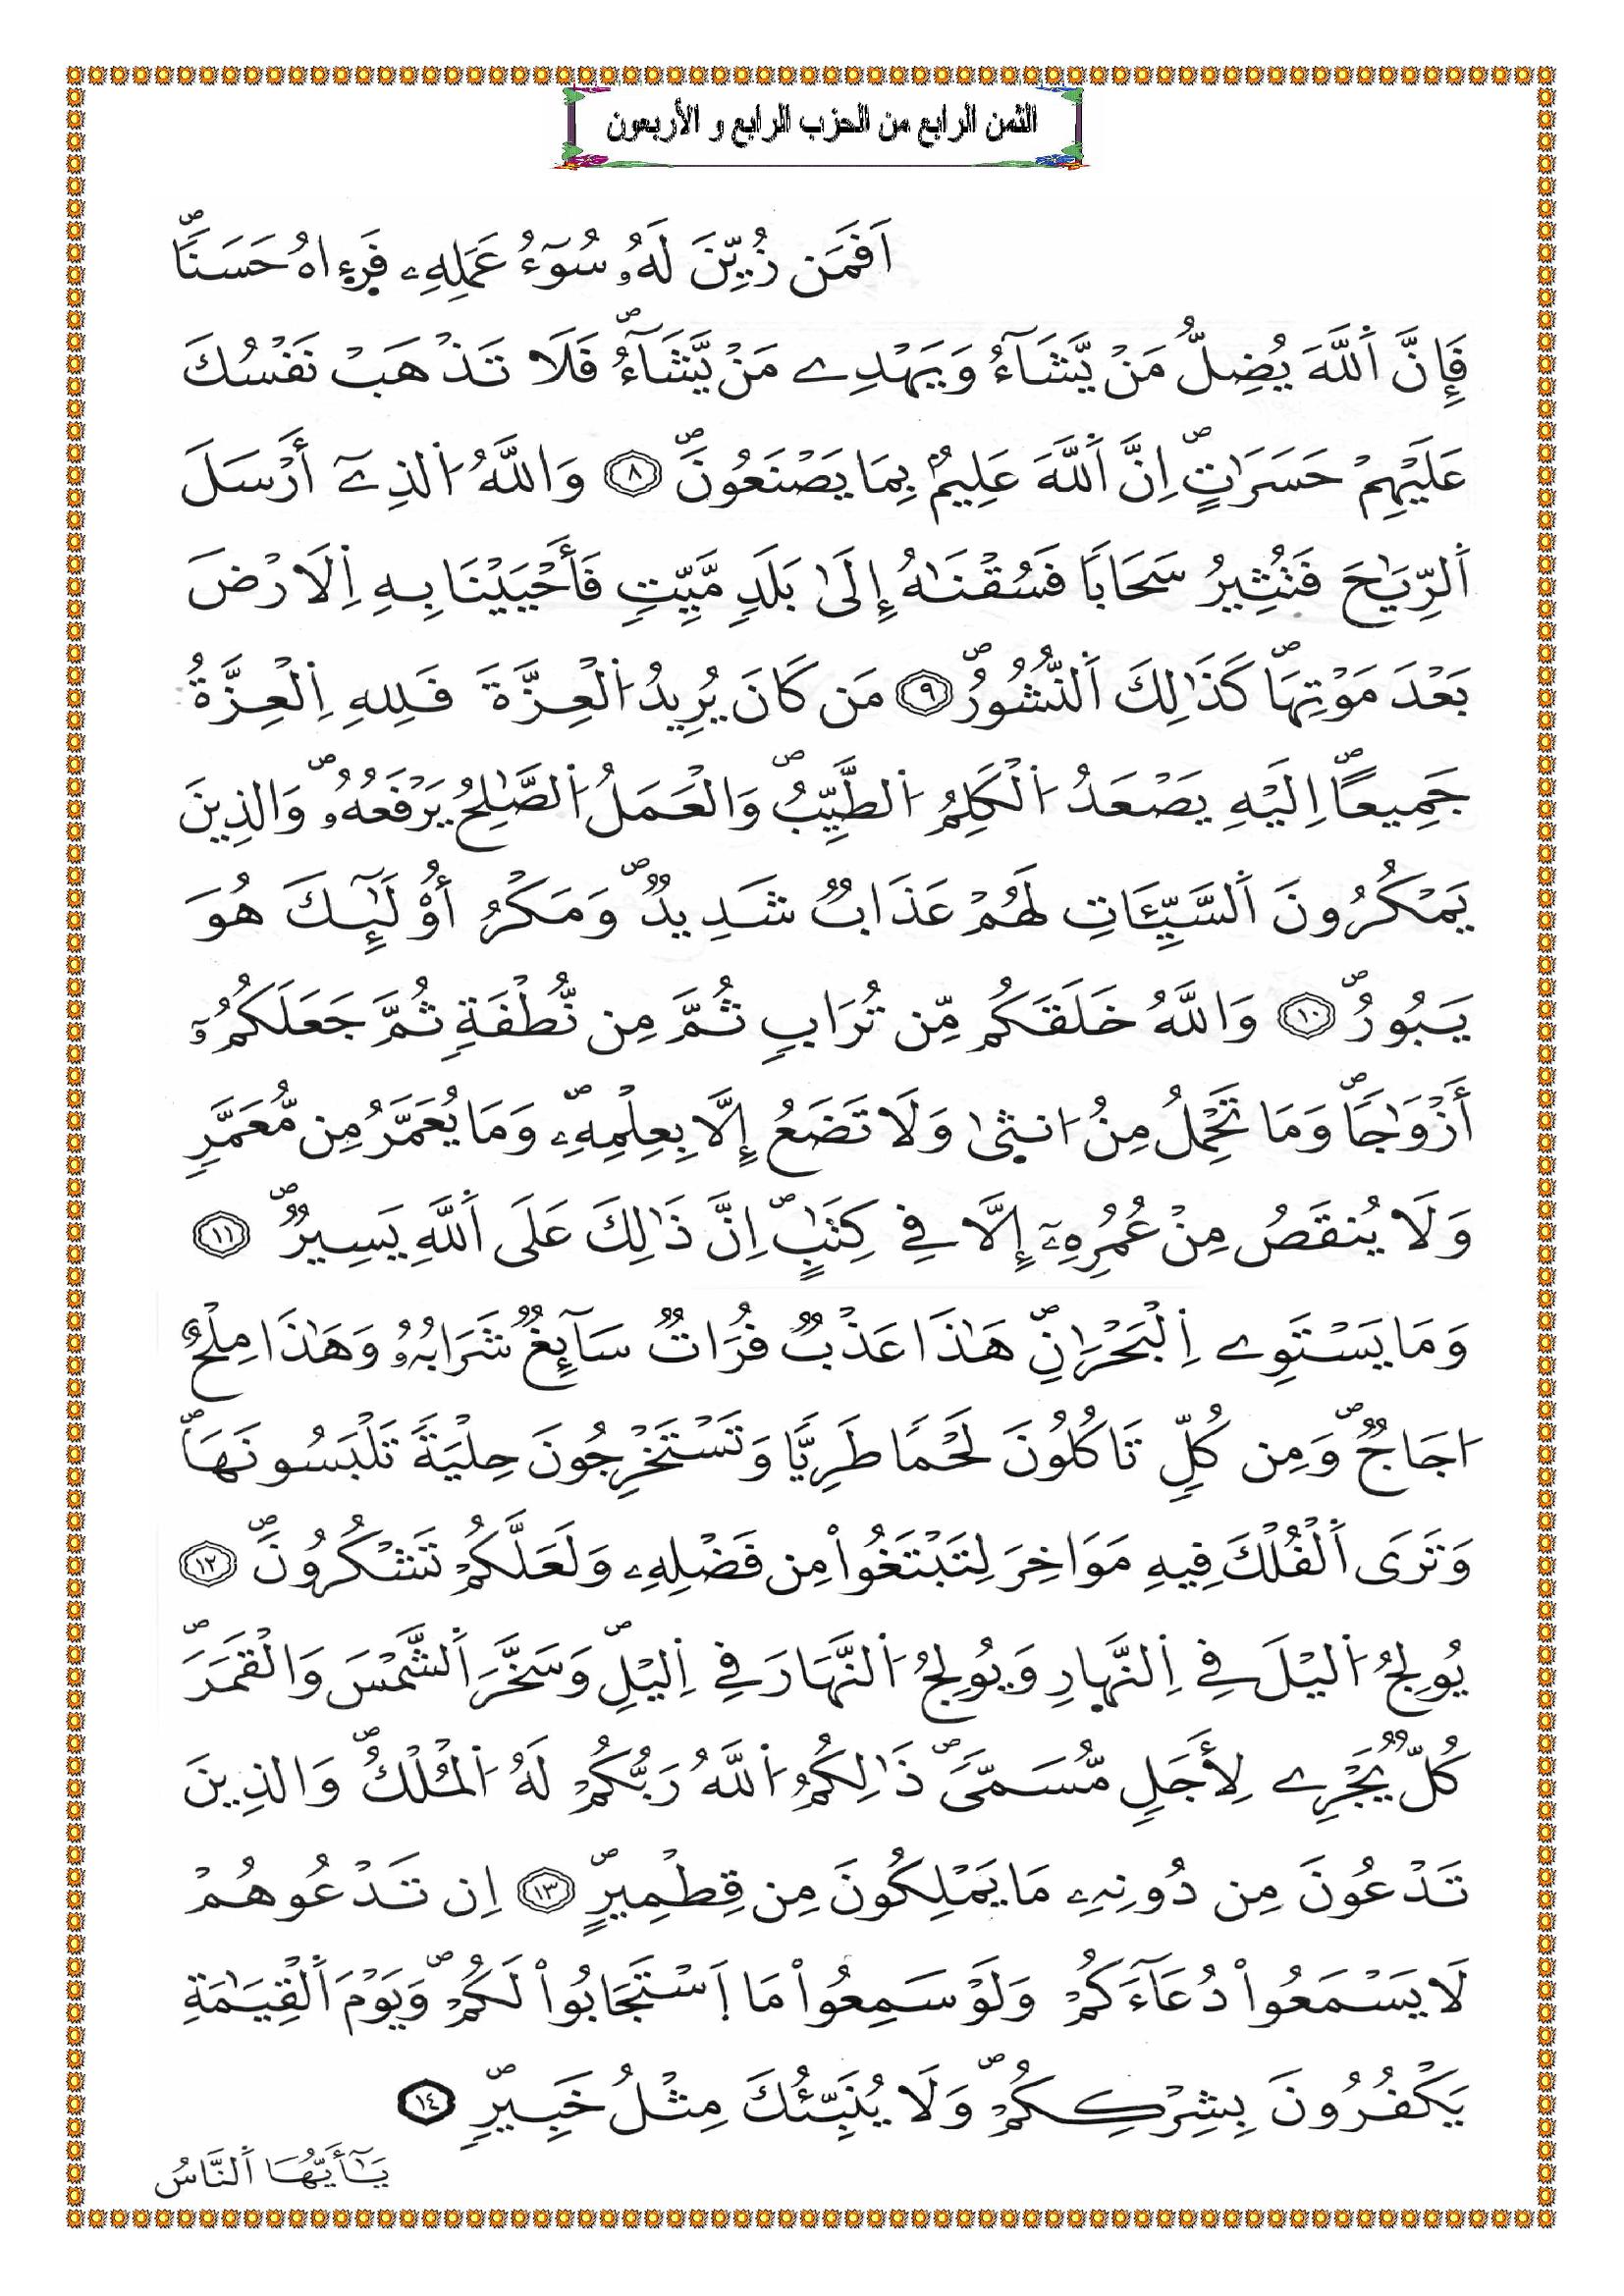 الثمن الرابع من الحزب الرابع و الأربعون
اَفَمَن زُيِّنَ لَهُۥ سُوٓءُ عَمَلِهِۦ فَرِءِاهُ حَسَنٗاۖ
فَإِنَّ اَ۬للَّهَ يُضِلُّ مَنْ يَّشَآءُ وَيَهْدِے مَنْ يَّشَآءُۖ فَلَا تَذْهَبْ نَفْسُكَ
عَلَيْهِمْ حَسَرَٰتٍۖ اِنَّ اَ۬للَّهَ عَلِيمُۢ بِمَا يَصْنَعُونَۖ ٨ وَاللَّهُ اُ۬لذِےٓ أَرْسَلَ
اَ۬لرِّيَٰحَ فَتُثِيرُ سَحَاباٗ فَسُقْنَٰهُ إِلَىٰ بَلَدٖ مَّيِّتٖ فَأَحْيَيْنَا بِهِ اِ۬لَارْضَ
بَعْدَ مَوْتِهَاۖ كَذَٰلِكَ اَ۬لنُّشُورُۖ ٩ مَن كَانَ يُرِيدُ اُ۬لْعِزَّةَ فَلِلهِ اِ۬لْعِزَّةُ
جَمِيعاًۖ اِلَيْهِ يَصْعَدُ اُ۬لْكَلِمُ اُ۬لطَّيِّبُۖ وَالْعَمَلُ اُ۬لصَّٰلِحُ يَرْفَعُهُۥۖ وَالذِينَ
يَمْكُرُونَ اَ۬لسَّيِّـَٔاتِ لَهُمْ عَذَابٞ شَدِيدٞۖ وَمَكْرُ أُوْلَٰٓئِكَ هُوَ
يَبُورُۖ ١٠ وَاللَّهُ خَلَقَكُم مِّن تُرَابٖ ثُمَّ مِن نُّطْفَةٖ ثُمَّ جَعَلَكُمُۥٓ
أَزْوَٰجاٗۖ وَمَا تَحْمِلُ مِنُ ا۟نث۪ىٰ وَلَا تَضَعُ إِلَّا بِعِلْمِهِۦۖ وَمَا يُعَمَّرُ مِن مُّعَمَّرٖ
وَلَا يُنقَصُ مِنْ عُمُرِهِۦٓ إِلَّا فِے كِتَٰبٍۖ اِنَّ ذَٰلِكَ عَلَى اَ۬للَّهِ يَسِيرٞۖ ١١
وَمَا يَسْتَوِے اِ۬لْبَحْرَٰنِۖ هَٰذَا عَذْبٞ فُرَاتٞ سَآئِغٞ شَرَابُهُۥ وَهَٰذَا مِلْحٌ
ا۟جَاجٞۖ وَمِن كُلّٖ تَاكُلُونَ لَحْماٗ طَرِيّاٗ وَتَسْتَخْرِجُونَ حِلْيَةٗ تَلْبَسُونَهَاۖ
وَتَرَى اَ۬لْفُلْكَ فِيهِ مَوَاخِرَ لِتَبْتَغُواْ مِن فَضْلِهِۦ وَلَعَلَّكُمْ تَشْكُرُونَۖ ١٢
يُولِجُ اُ۬ليْلَ فِے اِ۬لنَّه۪ارِ وَيُولِجُ اُ۬لنَّهَارَ فِے اِ۬ليْلِۖ وَسَخَّرَ اَ۬لشَّمْسَ وَالْقَمَرَۖ
كُلّٞ يَجْرِے لِأَجَلٖ مُّسَمّيٗۖ ذَٰلِكُمُ اُ۬للَّهُ رَبُّكُمْ لَهُ اُ۬لْمُلْكُۖ وَالذِينَ
تَدْعُونَ مِن دُونِهِۦ مَا يَمْلِكُونَ مِن قِطْمِيرٍۖ ١٣ اِن تَدْعُوهُمْ
لَا يَسْمَعُواْ دُعَآءَكُمْ وَلَوْ سَمِعُواْ مَا اَ۪سْتَجَابُواْ لَكُمْۖ وَيَوْمَ اَ۬لْقِيَٰمَةِ
يَكْفُرُونَ بِشِرْكِكُمْۖ وَلَا يُنَبِّئُكَ مِثْلُ خَبِيرٖۖ ١٤
يَٰٓأَيُّهَا اَ۬لنَّاسُ